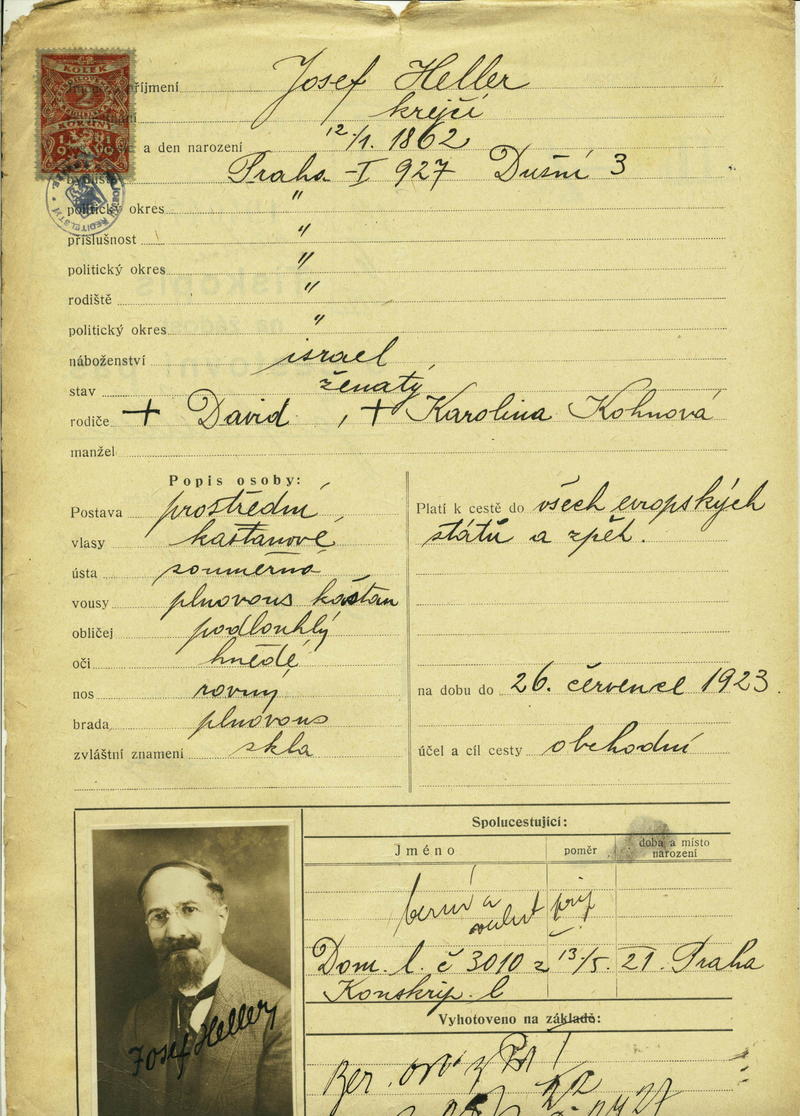 KOLEK
2
KORUNY
příjmení Josef Heller
krejčí
a den narození 12./1. 1862
Praha-I 927 Dušní 3
politický okres "
příslušnost "
politický okres "
rodiště "
politický okres "
náboženství israel
stav ženatý
rodiče + David, + Karolina Kohnová
manžel
Popis osoby:
Postava prostřední
vlasy kaštanové
ústa souměrná
vousy plnovous kaštan
obličej podlouhlý
oči hnědé
nos rovný
brada plnovous
zvláštní znamení skla
Platí k cestě do všech evropských
států a zpět.
na dobu do 26. července 1923.
účel a cíl cesty obchodní
Spolucestující:
Jméno poměr doba a místo narození
berní a
Dom. l. č 3010 z 13/5. 21. Praha
Konskrip. l
Vyhotoveno na základě:
Josef Heller